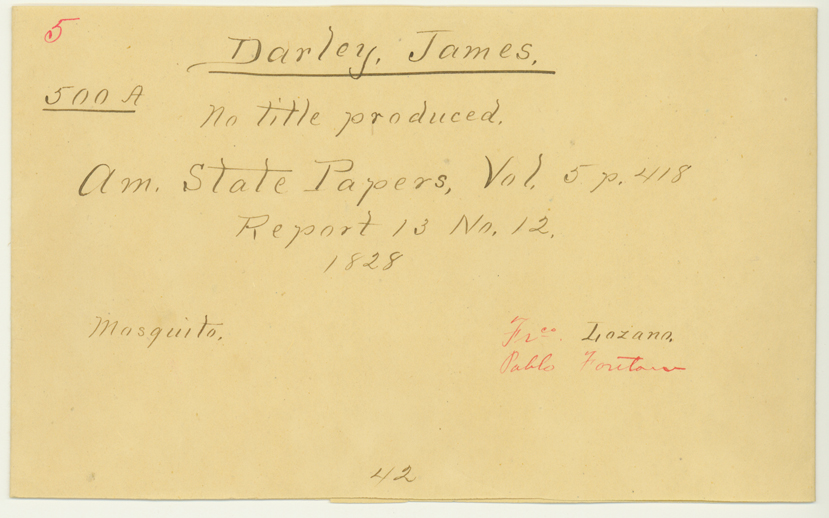 5
Darley, James.
500 A
No title produced.
Am. State Papers, Vol. 5 p. 418
Report 13 No. 12.
1828
Mosquito.
Frco. Lozano.
Pablo
42